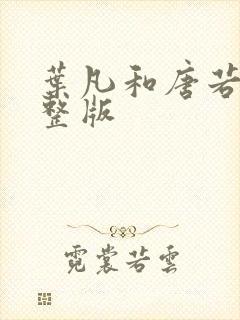 葉凡和唐若
整版
霓裳若雲